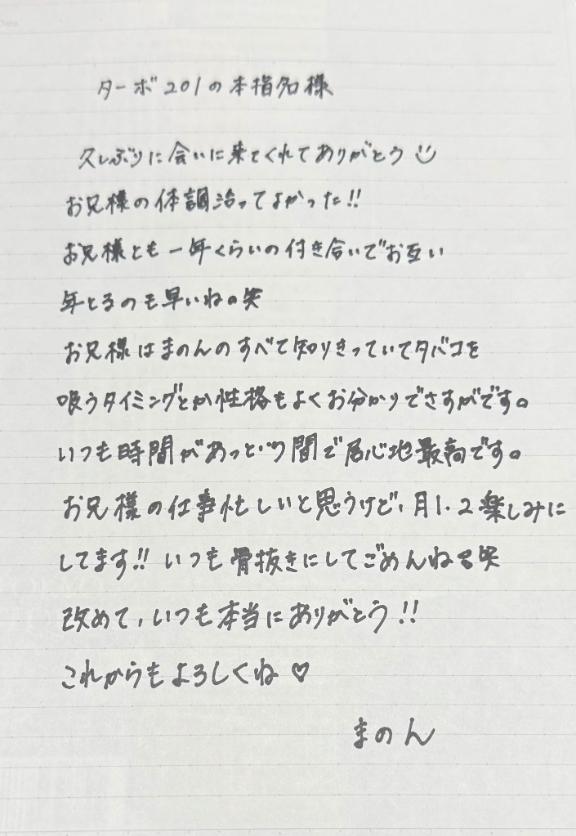 ターボ201の本指名様
久しぶりに会いに来てくれてありがとう
お兄様の体調治ってよかった!!
お兄様とも一年くらいの付き合いでお互い
年とるのも早いね。笑
お兄様はまのんのすべて知りきっていてタバコを
吸うタイミングとか性格もよくお分かりでさすがです。
いつも時間があっという間で居心地最高です。
お兄様の仕事忙しいと思うけど、月1.2楽しみに
してます!!いつも骨抜きにしてごめんね笑
改めて、いつも本当にありがとう!!
これからもよろしくね♡
まのん